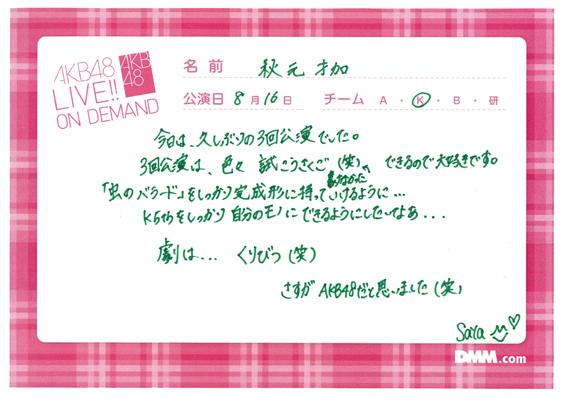 AKB48
LIVE!!
ON DEMAND
AKB
48
名前 秋元才加
公演日 8月16日 チーム A・K・B・研
今日は、久しぶりの3回公演でした。
3回公演は、色々 試こうさくご(笑) できるので大好きです。
「虫のバラード」をしっかり完成形に持っていけるように...
K5thをしっかり自分のモノにできるようにしたいなぁ...
劇は... くりびつ(笑)
さすがAKB48だと思いました(笑)
Saya
DMM.com